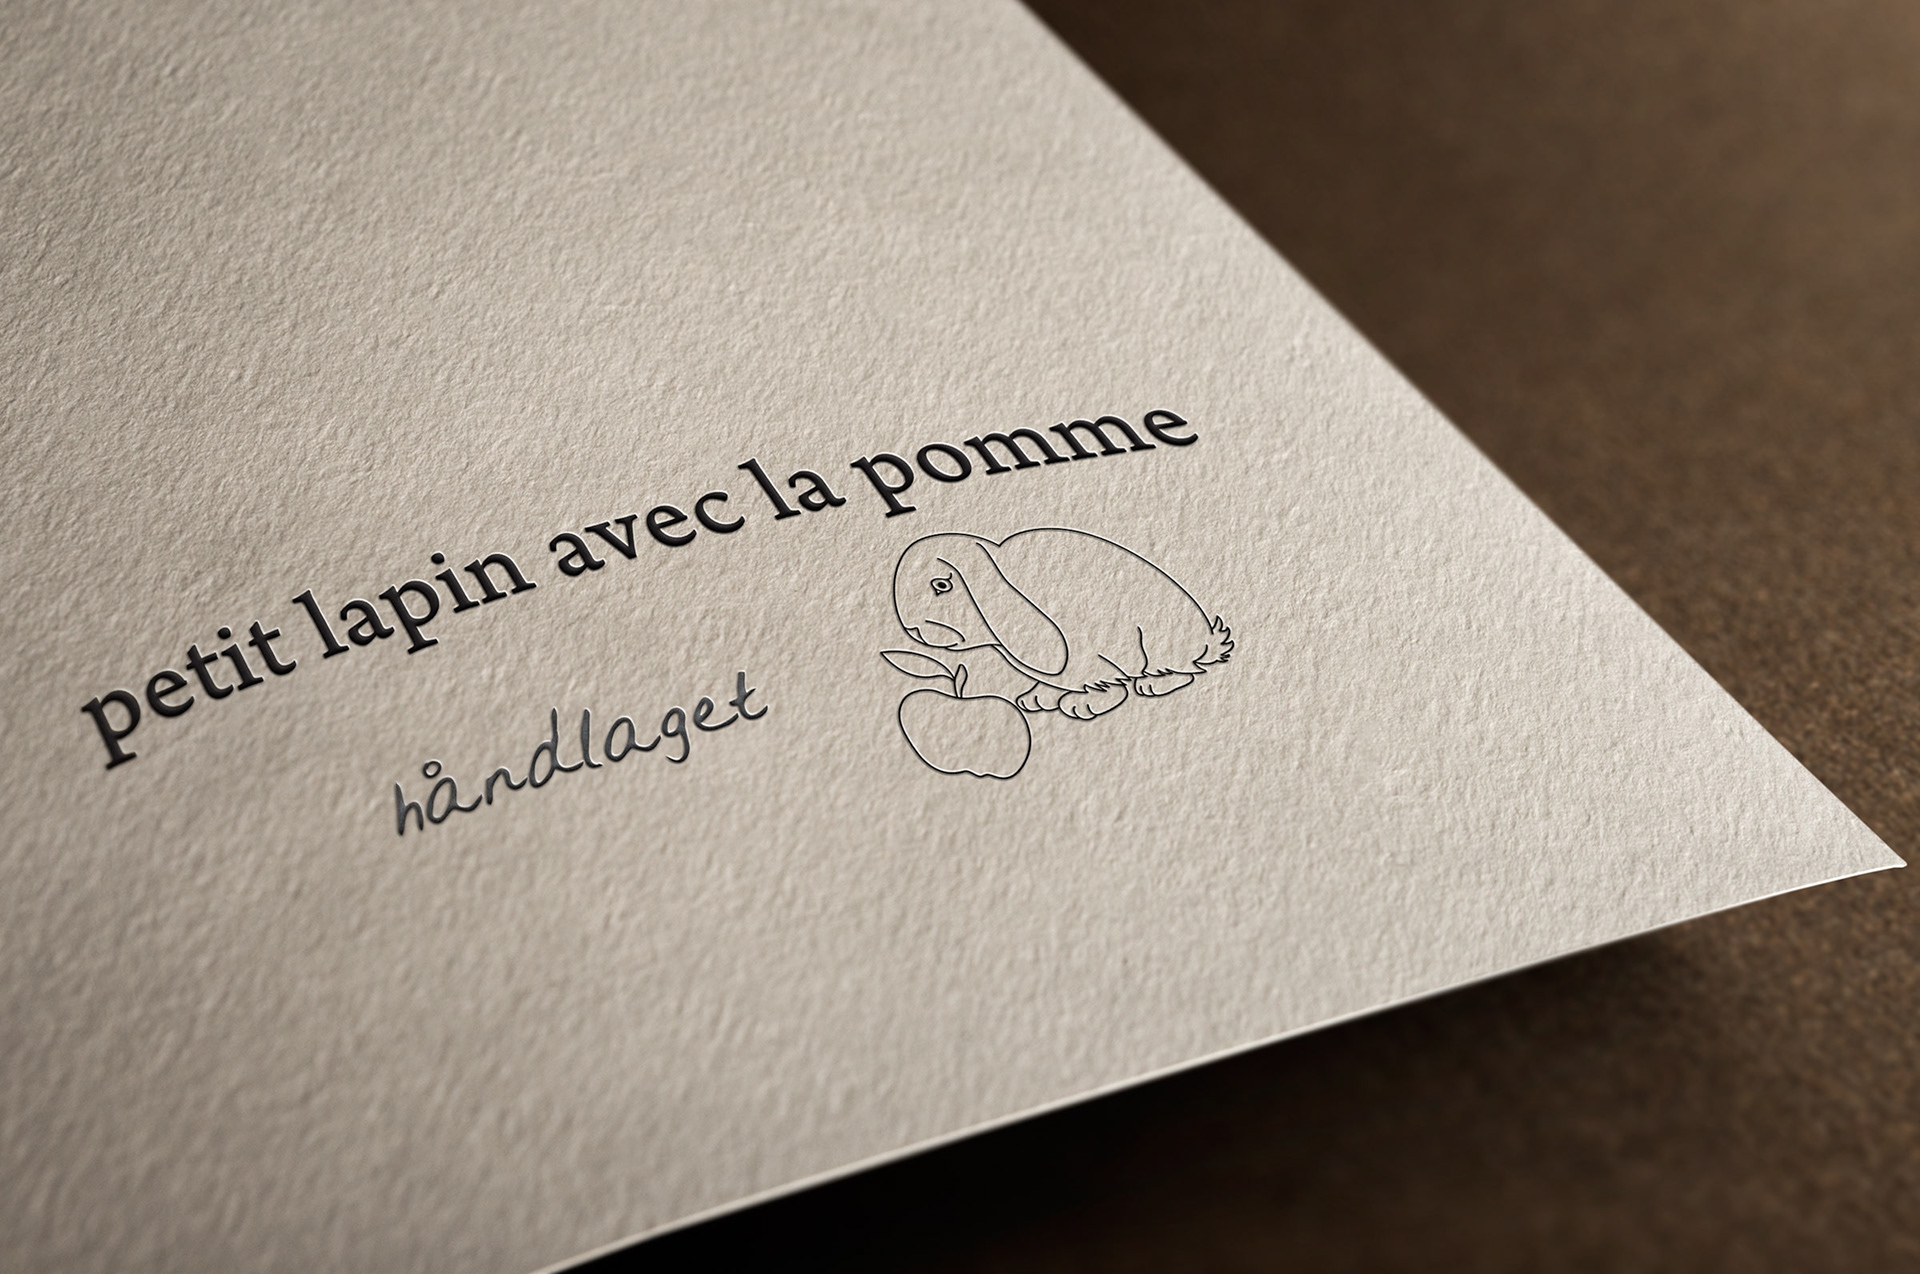 petit lapin avec la pomme
håndlaget